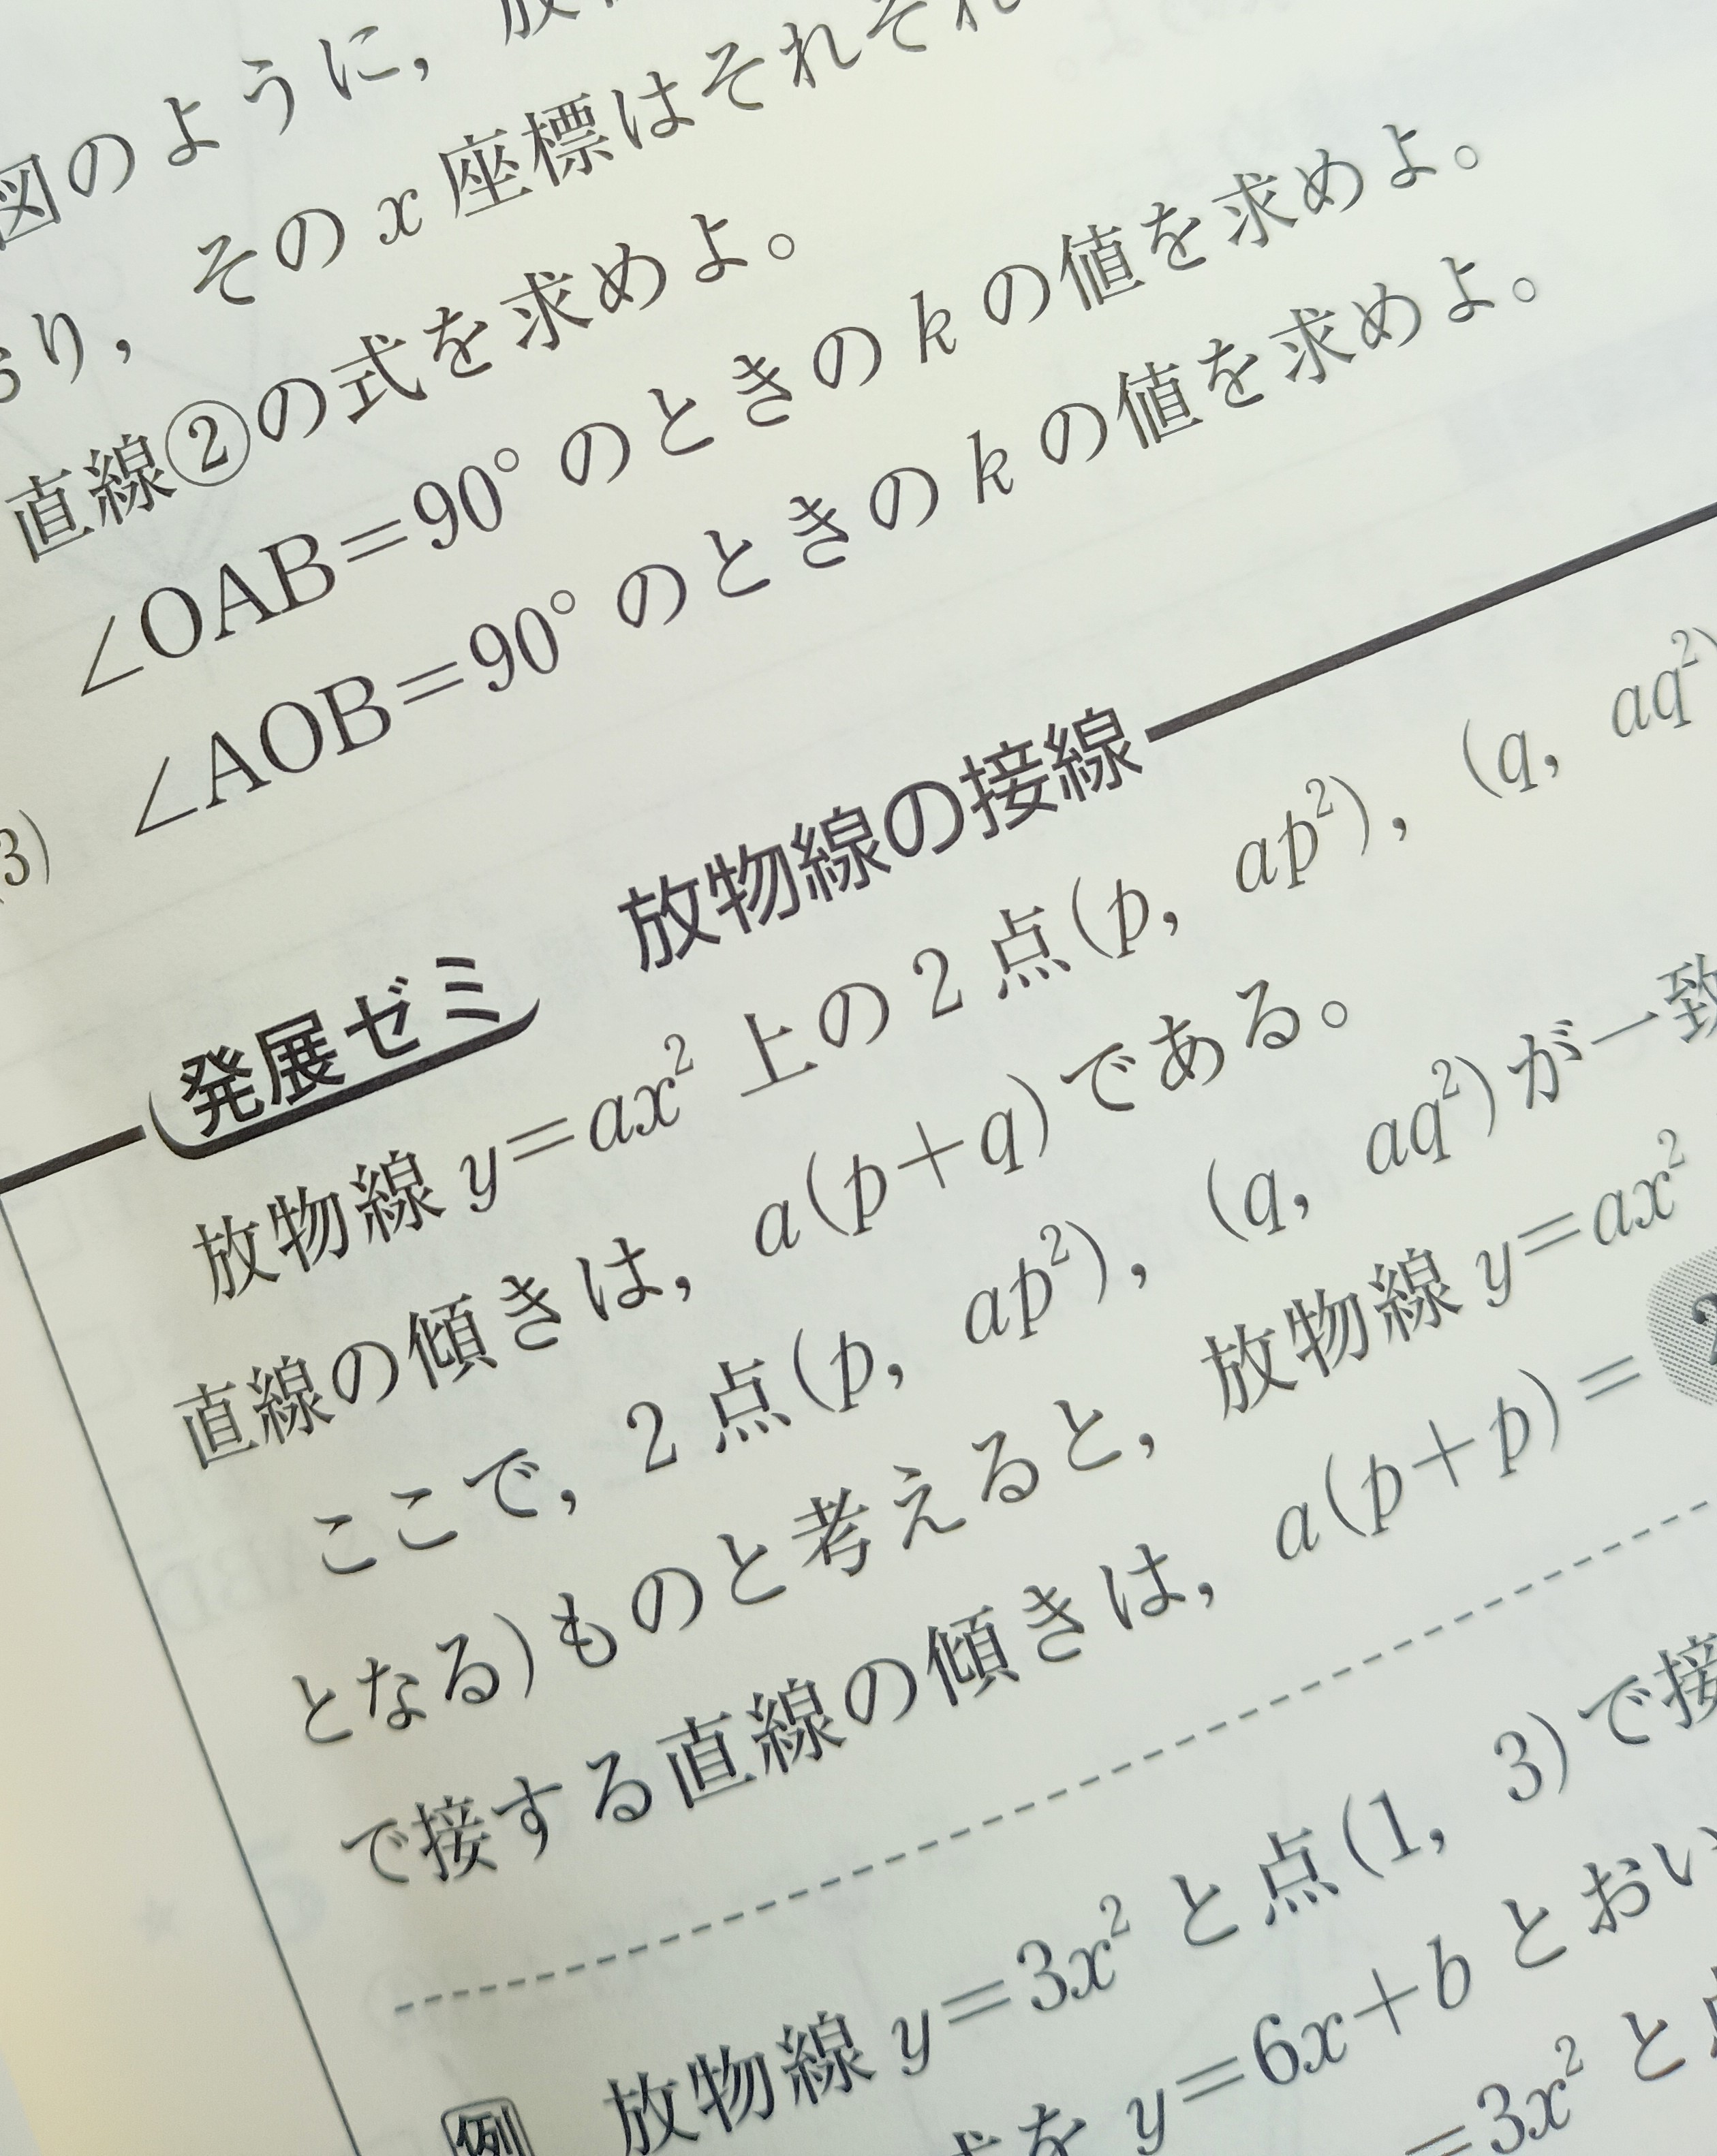 図のように，
おり，そのx座標はそれぞれ
直線②の式を求めよ。
∠OAB=90°のときのkの値を求めよ。
(3) ∠AOB=90°のときのkの値を求めよ。
発展ゼミ 放物線の接線
放物線y=ax²上の2点(p, ap²)，(q, aq²)
直線の傾きは，a(p+q)である。
ここで，2点(p, ap²)，(q, aq²)が一致
となる)ものと考えると，放物線y=ax²
で接する直線の傾きは，a(p+p)=2
例 放物線y=3x²と点(1, 3)で接
式をy=6x+bとおい
=3x²と点